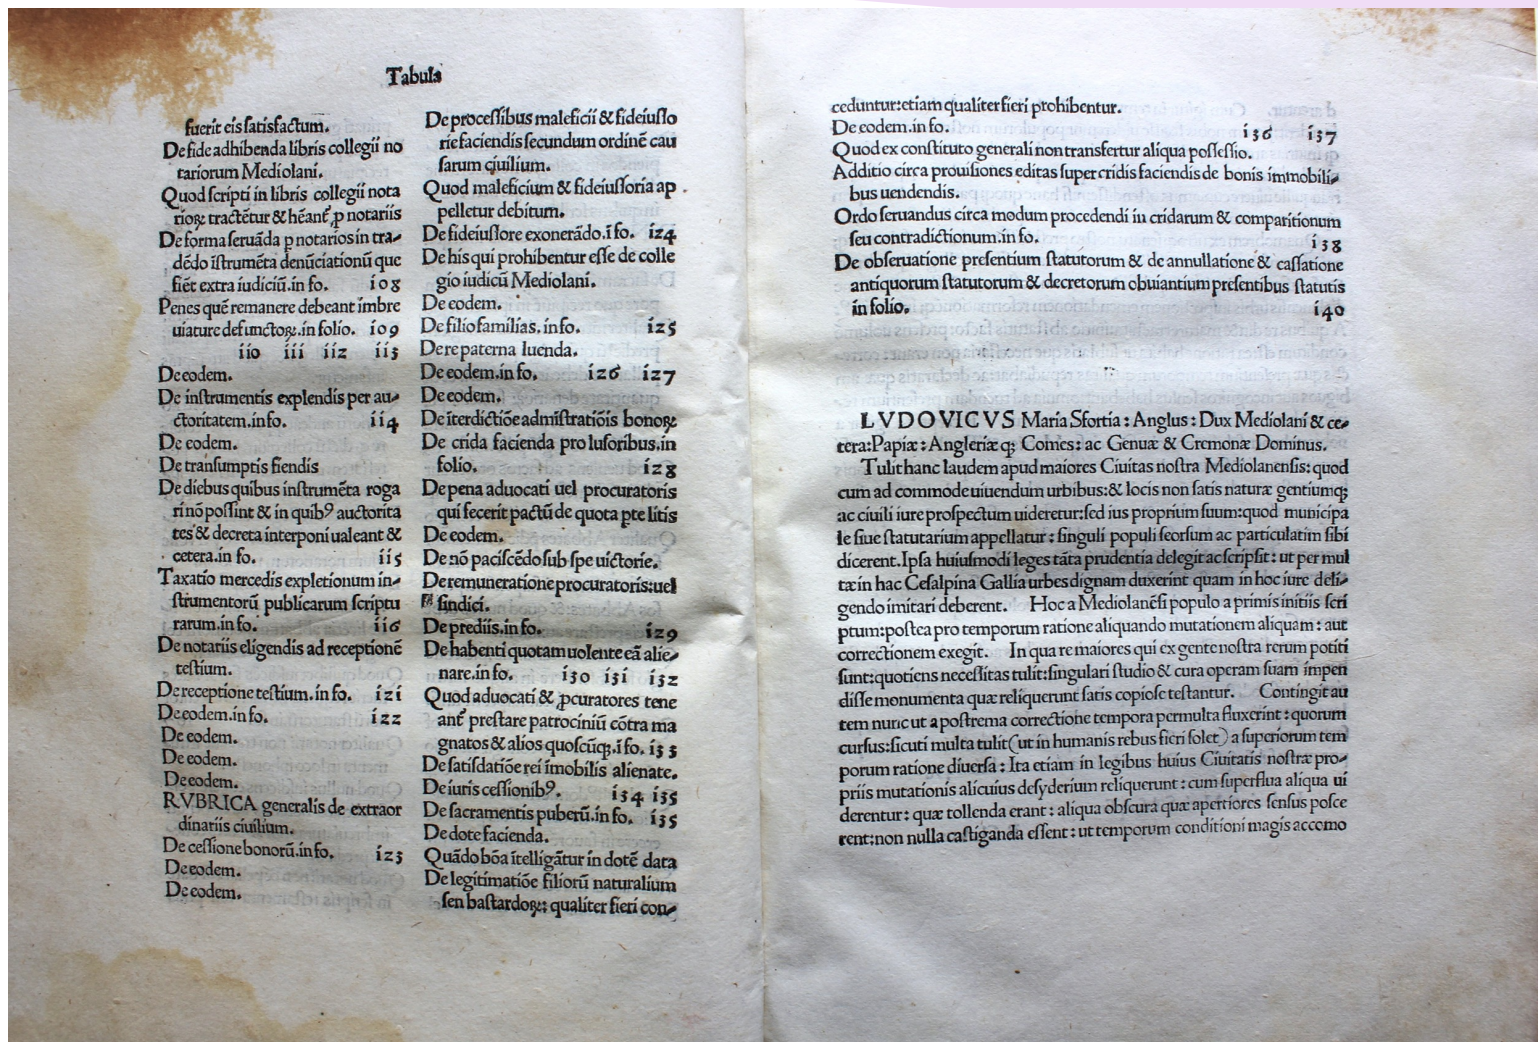 Tabula
fuerit eis satisfactum.
De fide adhibenda libris collegii no
tariorum Mediolani.
Quod scripti in libris collegii nota
rioꝝ tractẽtur & hẽant᷑ ꝑ notariis
De forma seruãda p notarios in tra-
dẽdo ĩstrumẽta denũciationũ que
fiẽt extra iudiciũ.in fo. 108
Penes quẽ remanere debeant imbre
uiature defunctoꝝ.in folio. 109
110 111 112 113
De eodem.
De instrumentis explendis per au-
ctoritatem.in fo. 114
De eodem.
De transumptis fiendis
De diebus quibus instrumẽta roga
ri nõ possint & in quibꝰ auctorita
tes & decreta interponi ualeant &
cetera.in fo. 115
Taxatio mercedis expletionum in-
strumentorũ publicarum scriptu
rarum.in fo. 116
De notariis eligendis ad receptionẽ
testium.
De receptione testium.in fo. 121
De eodem.in fo. 122
De eodem.
De eodem.
De eodem.
RVBRICA generalis de extraor
dinariis ciuilium.
De cessione bonorũ.in fo. 123
De eodem.
De eodem.
De processibus maleficii & fideiusso
rie faciendis secundum ordinẽ cau
sarum ciuilium.
Quod maleficium & fideiussoria ap
pelletur debitum.
De fideiussore exonerãdo.ĩ fo. 124
De his qui prohibentur esse de colle
gio iudicũ Mediolani.
De eodem.
De filio familias.in fo. 125
De re paterna luenda.
De eodem.in fo. 126 127
De eodem.
De ĩterdictiõe admĩstratiõis bonoꝝ
De crida facienda pro lusoribus.in
folio. 128
De pena aduocati uel procuratoris
qui fecerit pactũ de quota pte litis
De eodem.
De nõ paciscẽdo sub spe uictorie.
De remuneratione procuratoris:uel
sindici.
De prediis.in fo. 129
De habenti quotam uolente eã alie-
nare.in fo. 130 131 132
Quod aduocati & ꝓcuratores tene
ant᷑ prestare patrociniũ cõtra ma
gnatos & alios quoscũqꝫ.ĩ fo. 133
De satisdatiõe rei ĩmobilis alienate.
De iuris cessionibꝰ. 134 135
De sacramentis puberũ.in fo. 135
De dote facienda.
Quãdo bõa ĩtelligãtur in dotẽ data
De legitimatiõe filiorũ naturalium
sen bastardoꝝ: qualiter fieri con-
ceduntur:etiam qualiter fieri prohibentur.
De eodem.in fo. 136 137
Quod ex constituto generali non transfertur aliqua possessio.
Additio circa prouisiones editas super cridis faciendis de bonis immobili-
bus uendendis.
Ordo seruandus circa modum procedendi in cridarum & comparitionum
seu contradictionum.in fo. 138
De obseruatione presentium statutorum & de annullatione & cassatione
antiquorum statutorum & decretorum obuiantium presentibus statutis
in folio. 140
LVDOVICVS Maria Sfortia: Anglus: Dux Mediolani & ce-
tera:Papiæ: Angleriæ qꝫ Comes: ac Genuæ & Cremonæ Dominus.
Tulit hanc laudem apud maiores Ciuitas nostra Mediolanensis: quod
cum ad commode uiuendum urbibus:& locis non satis naturæ gentiumqꝫ
ac ciuili iure prospectum uideretur:sed ius proprium suum:quod municipa
le siue statutarium appellatur: singuli populi seorsum ac particulatim sibi
dicerent.Ipsa huiusmodi leges tãta prudentia delegit ac scripsit: ut per mul
tæ in hac Cesalpina Gallia urbes dignam duxerint quam in hoc iure deli-
gendo imitari deberent. Hoc a Mediolanẽsi populo a primis initiis scri
ptum:postea pro temporum ratione aliquando mutationem aliquam: aut
correctionem exegit. In qua re maiores qui ex gente nostra rerum potiti
sunt:quotiens necessitas tulit:singulari studio & cura operam suam impen
disse monumenta quæ reliquerunt satis copiose testantur. Contingit au
tem nunc ut a postrema correctione tempora permulta fluxerint: quorum
cursus:sicuti multa tulit(ut in humanis rebus fieri solet) a superiorum tem
porum ratione diuersa: Ita etiam in legibus huius Ciuitatis nostræ pro-
priis mutationis alicuius desyderium reliquerunt: cum superflua aliqua ui
derentur: quæ tollenda erant: aliqua obscura quæ apertiores sensus posce
rent:non nulla castiganda essent: ut temporum conditioni magis accomo